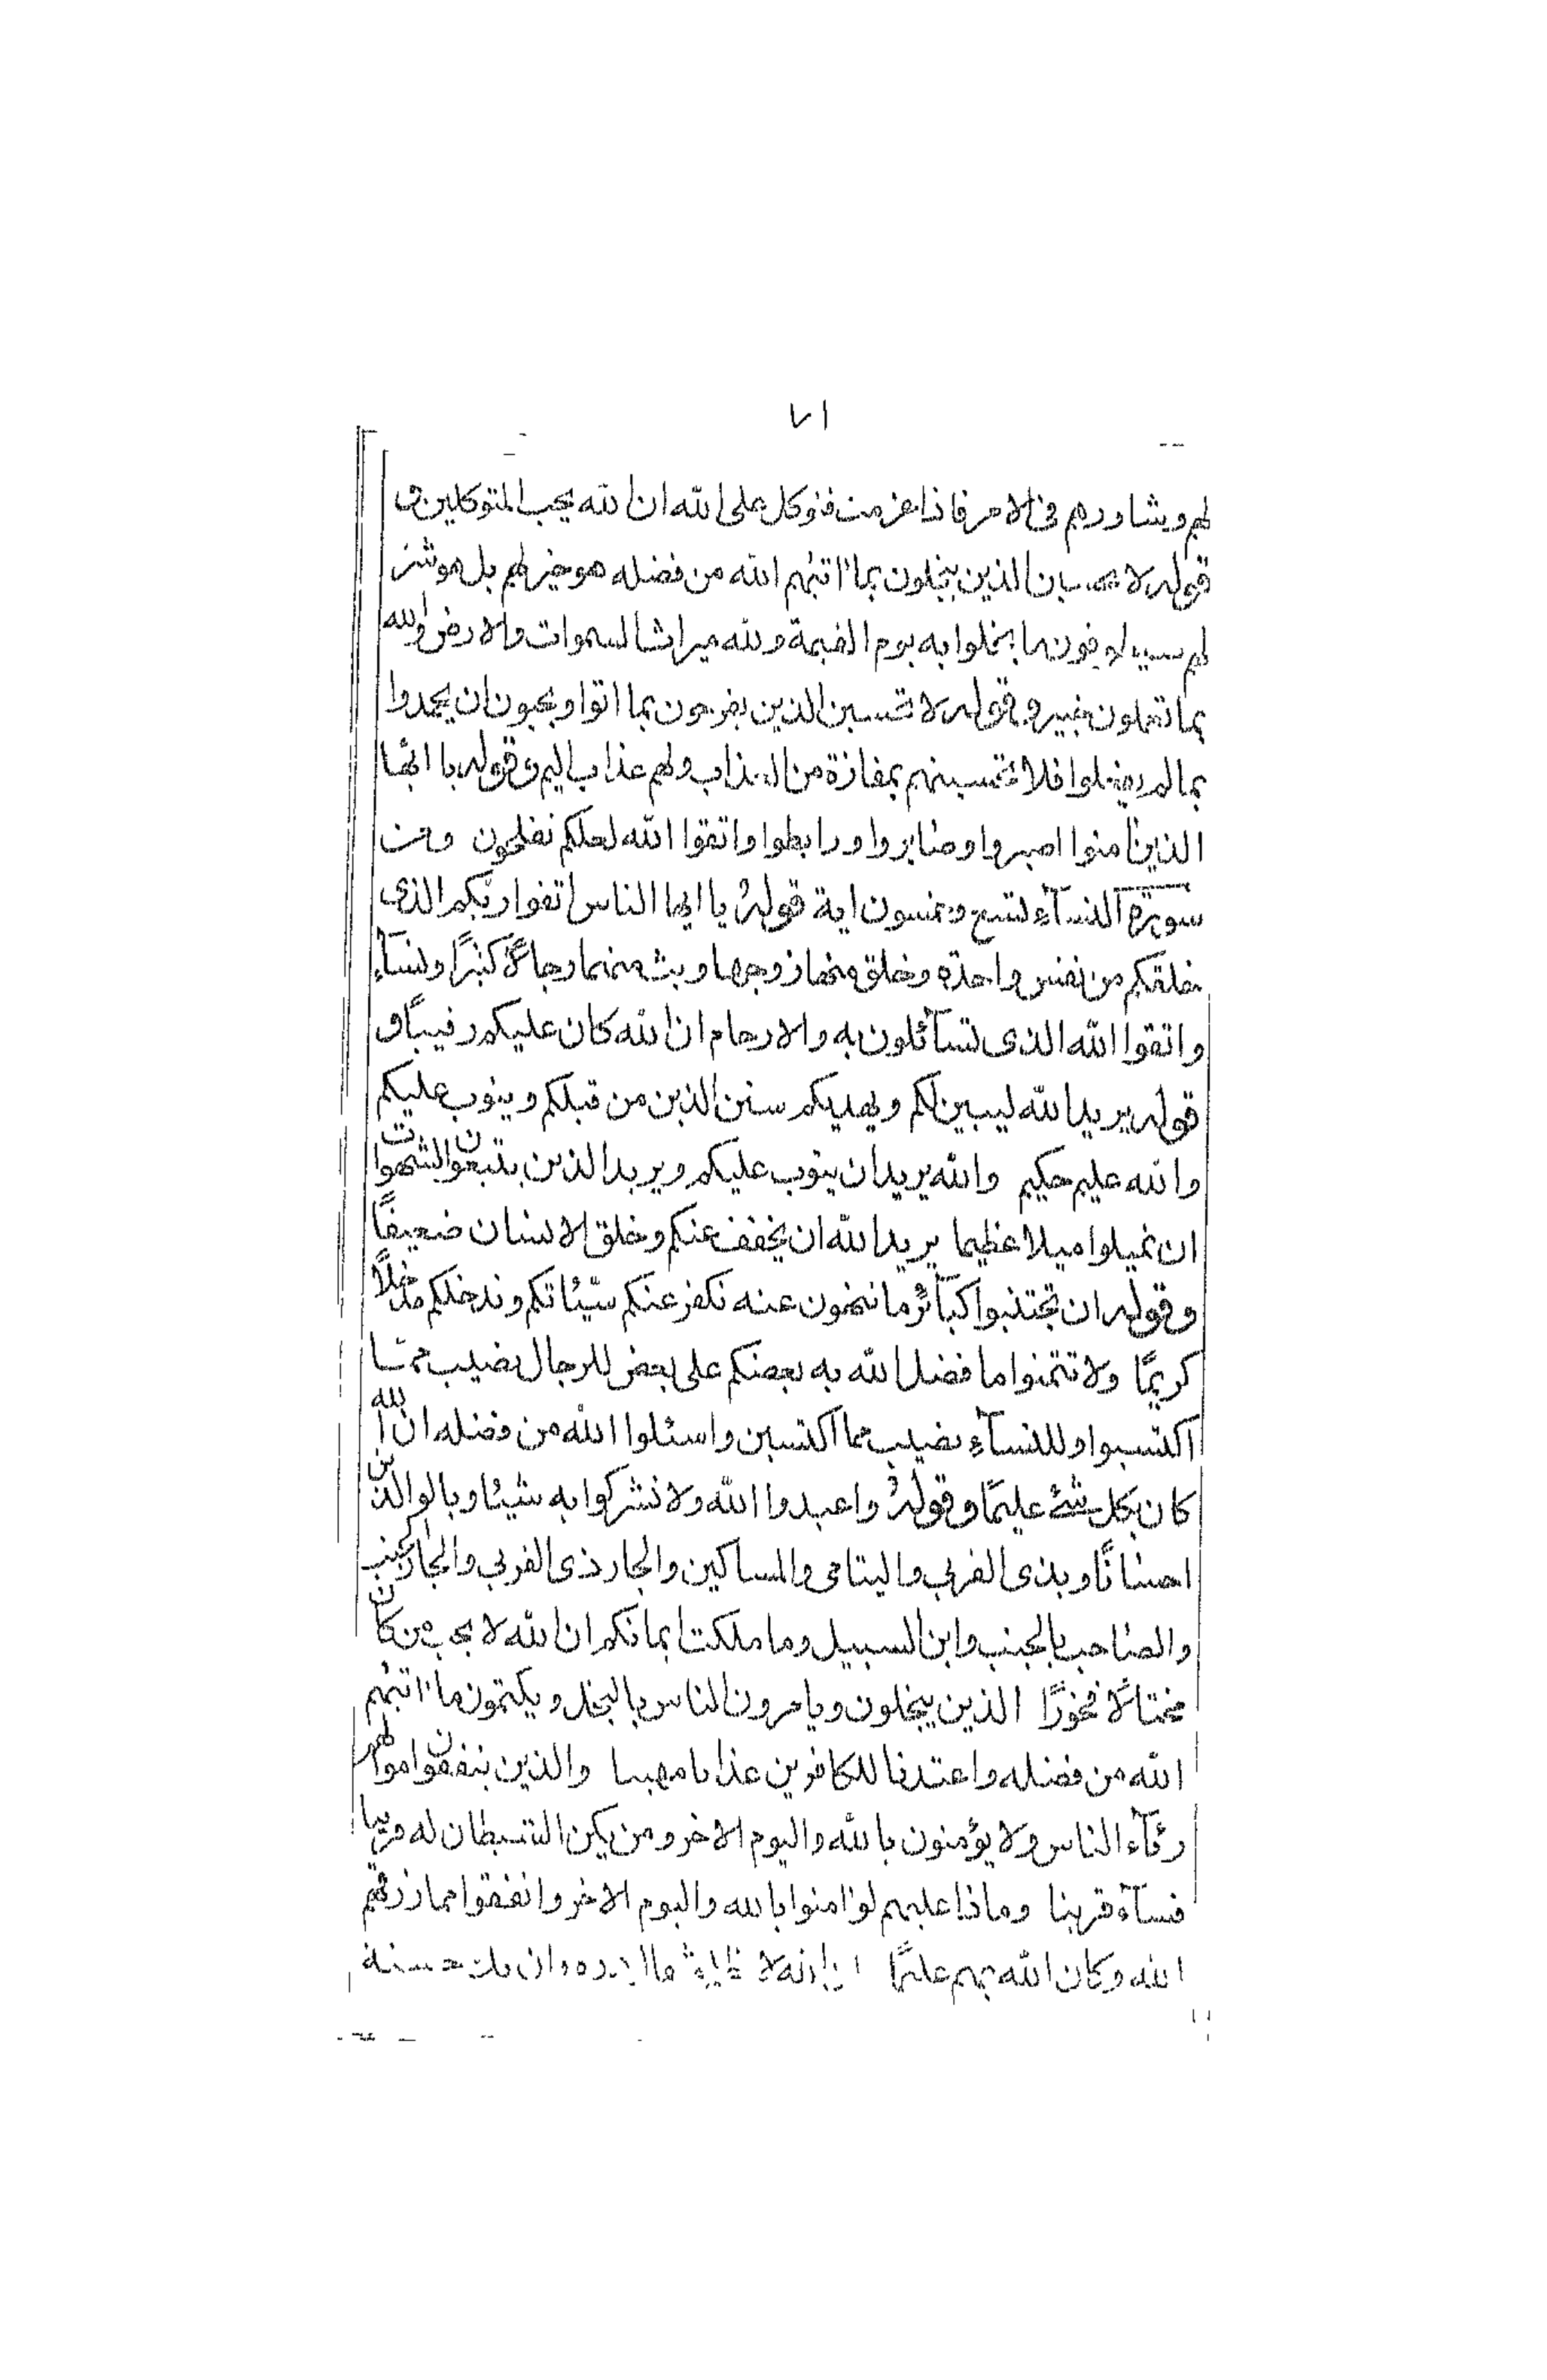 ٧١
لهم وشاورهم فى الامر فاذا عزمت فتوكل على الله ان الله يحب المتوكلين و
قوله لا يحسبن الذين يبخلون بما اتيهم الله من فضله هو خير لهم بل هو شر
لهم سيطوقون ما بخلوا به يوم القيمة ولله ميراث السموات والارض والله
بما تعملون خبير وقوله لا تحسبن الذين يفرحون بما اتوا ويحبون ان يحمدوا
بما لم يفعلوا فلا تحسبنهم بمفازة من العذاب ولهم عذاب اليم وقوله يا ايها
الذين آمنوا اصبروا وصابروا ورابطوا واتقوا الله لعلكم تفلحون ومن
سورة النسآء تسع وخمسون اية قوله يا ايها الناس اتقوا ربّكم الذى
خلقكم من نفس واحدة وخلق منها زوجها وبث منهما رجالاً كثيرًا ونسآء
واتقوا الله الذى تسآئلون به والارحام ان الله كان عليكم رقيبًا و
قوله يريد الله ليبين لكم ويهديكم سنن الذين من قبلكم ويتوب عليكم
والله عليم حكيم والله يريد ان يتوب عليكم ويريد الذين يتبعون الشهوات
ان تميلوا ميلا عظيما يريد الله ان يخفف عنكم وخلق الانسان ضعيفًا
وقوله ان تجتنبوا كبآئر ما تنهون عنه نكفر عنكم سيّئاتكم وندخلكم مدخلًا
كريمًا ولا تتمنوا ما فضل الله به بعضكم على بعض للرجال نصيب ممّا
اكتسبوا وللنسآء نصيب مما اكتسبن واسئلوا الله من فضله ان الله
كان بكل شئ عليمًا وقوله واعبدوا الله ولا تشركوا به شيئا وبالوالدين
احسانًا وبذى القربى واليتامى والمساكين والجار ذى القربى والجار الجنب
والصاحب بالجنب وابن السبيل وما ملكت ايمانكم ان الله لا يحب من كان
مختالًا فخورًا الذين يبخلون ويامرون الناس بالبخل ويكتمون ما اتيهم
الله من فضله واعتدنا للكافرين عذابا مهينا والذين ينفقون اموالهم
رئآء الناس ولا يؤمنون بالله واليوم الاخر ومن يكن الشيطان له قرينا
فسآء قرينا وماذا عليهم لو آمنوا بالله واليوم الاخر وانفقوا مما رزقهم
الله وكان الله بهم عليمًا ان الله لا وان تك حسنة